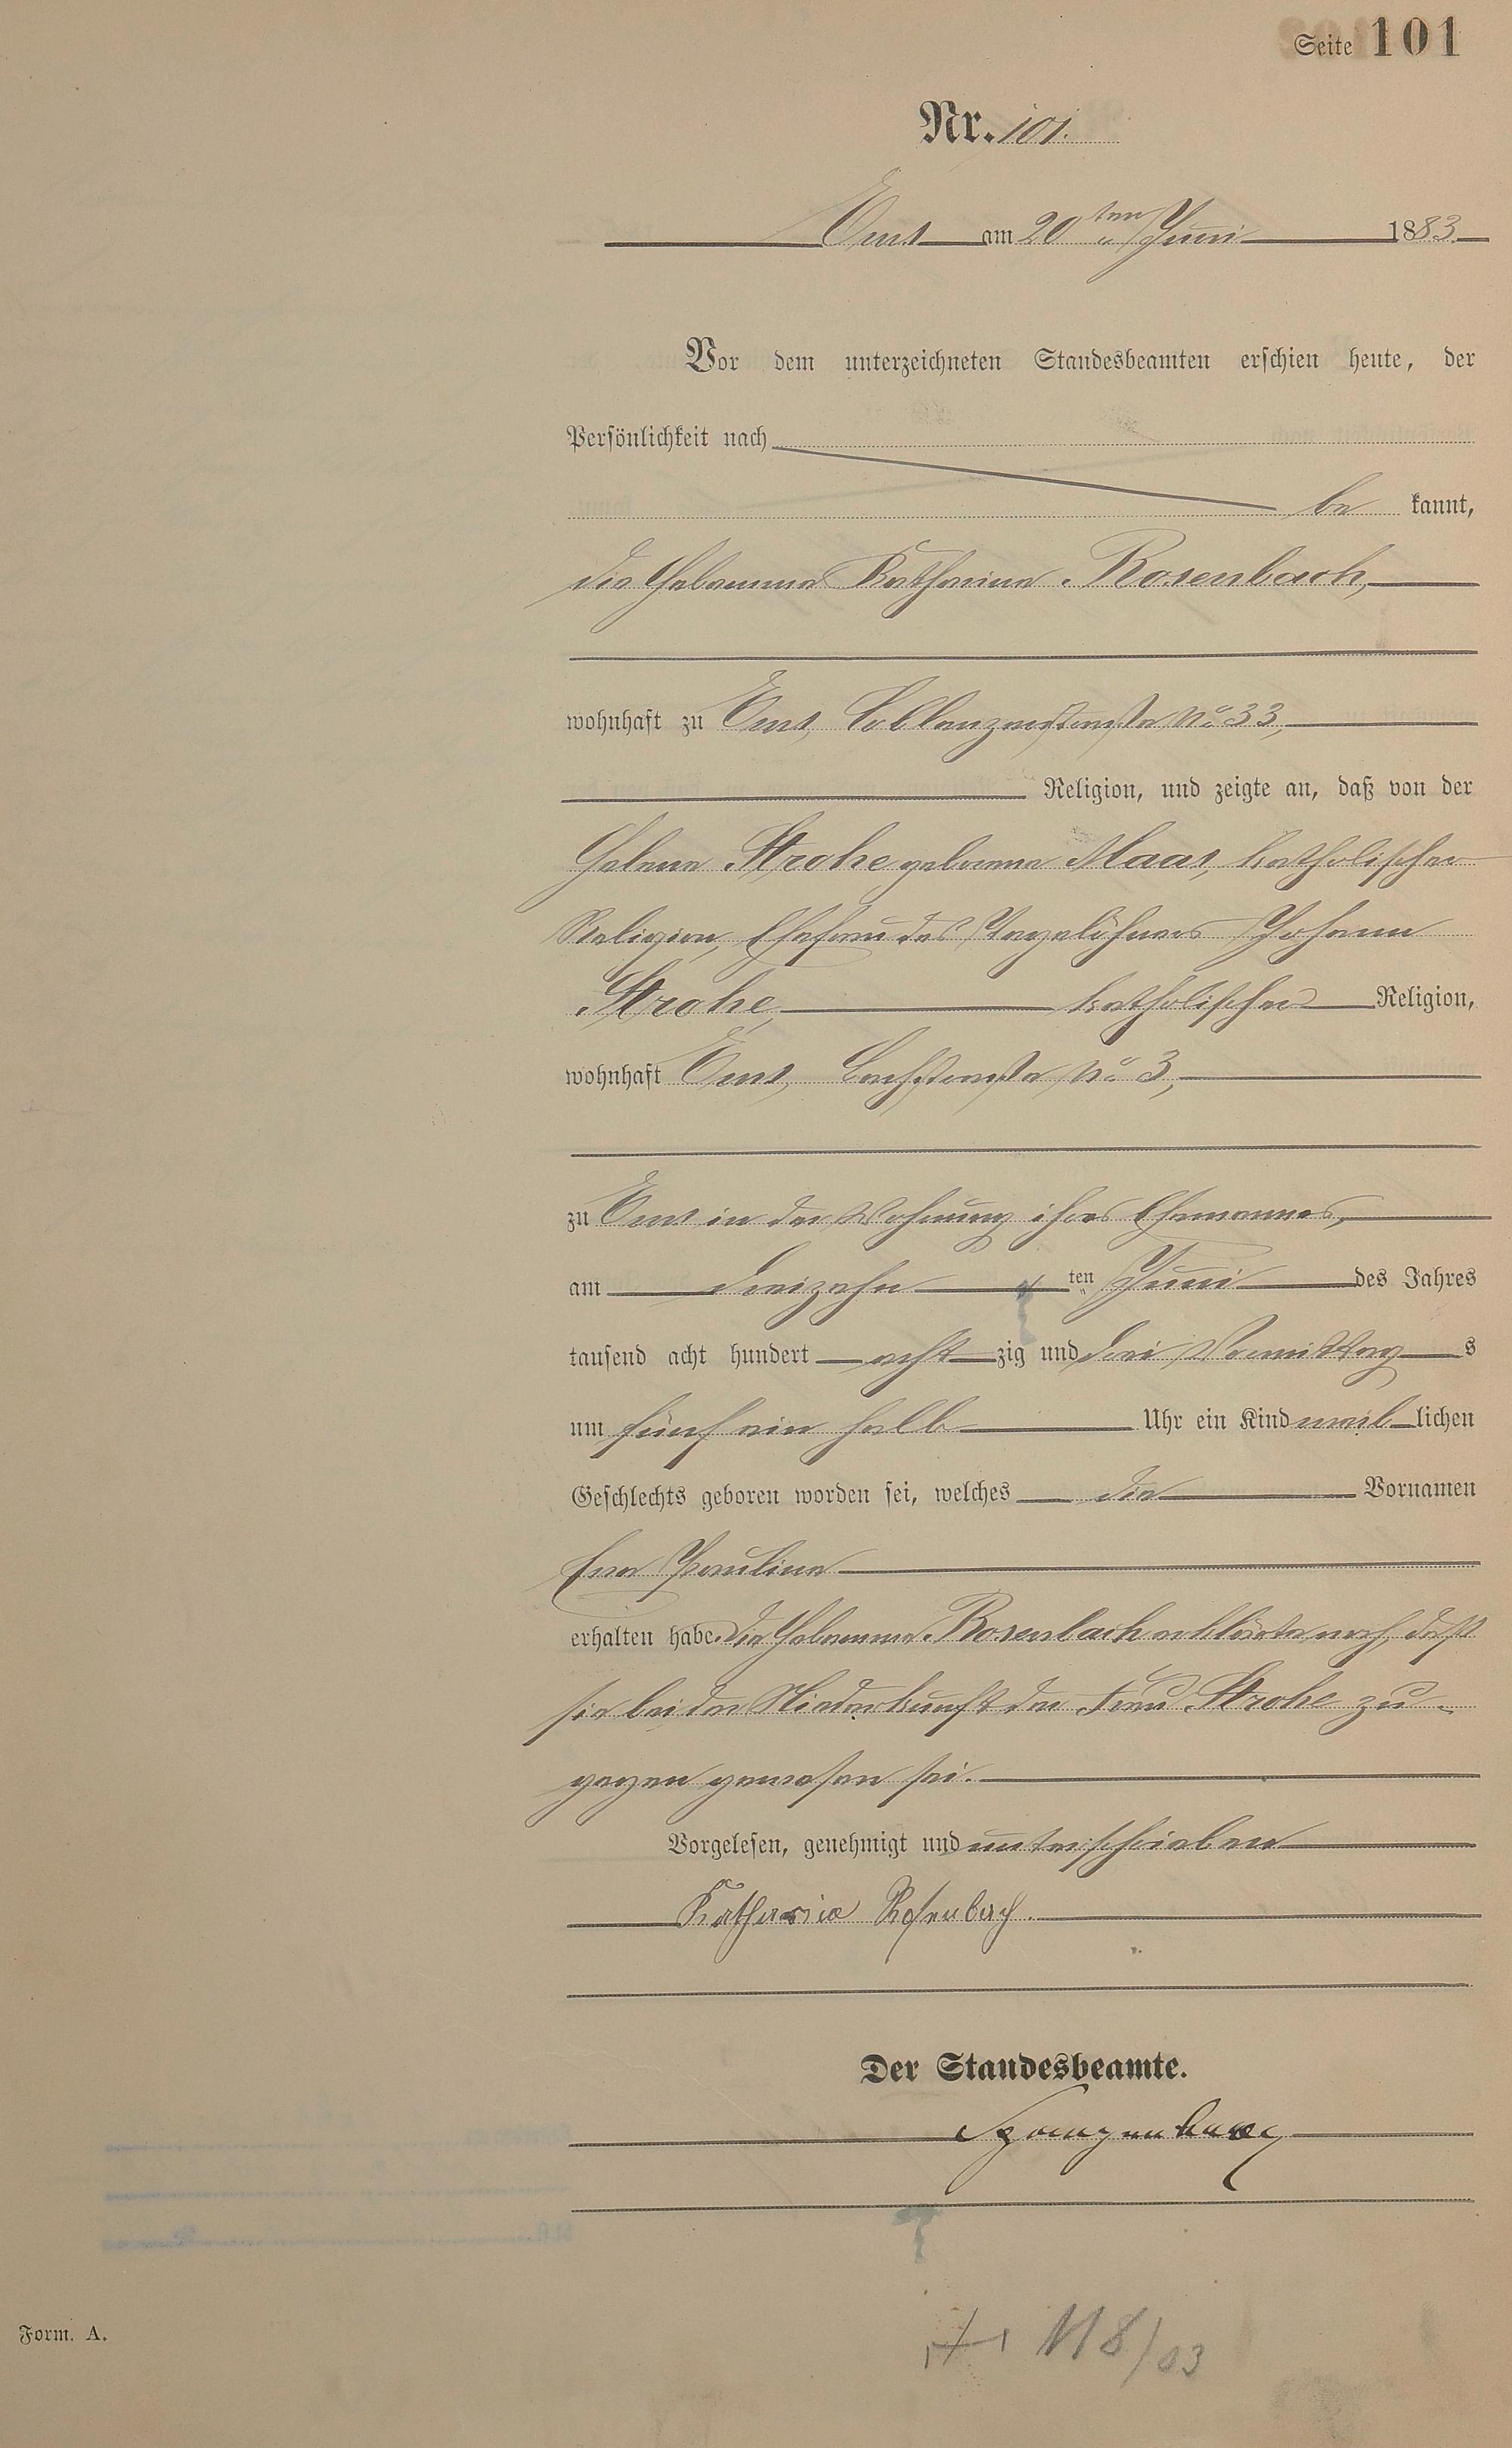 Seite 101
Nr. 101.
Ems am 20 ten Juni 1883.
Vor dem unterzeichneten Standesbeamten erschien heute, der
Persönlichkeit nach
be kannt,
die Hebamme Katharina Rosenbach,
wohnhaft zu Ems, Coblenzerstraße No 33,
Religion, und zeigte an, daß von der
Helene Strohe geborene Maas, katholischer
Religion, Ehefrau des Tagelöhners Johann
Strohe, katholischer Religion,
wohnhaft Ems, Bachstraße No 3,
zu Ems in der Wohnung ihres Ehemannes,
am dreizehn ten Juni des Jahres
tausend acht hundert acht zig und drei Vormittag s
um fünf ein halb Uhr ein Kind weib lichen
Geschlechts geboren worden sei, welches die Vornamen
Eva Pauline
erhalten habe. Die Hebamme Rosenbach erklärte noch, daß
sie bei der Niederkunft der Frau Strohe zu-
gegen gewesen sei.
Vorgelesen, genehmigt und unterschrieben
Katharina Rosenbach.
Der Standesbeamte.
Spangenberg
118/03
Form. A.